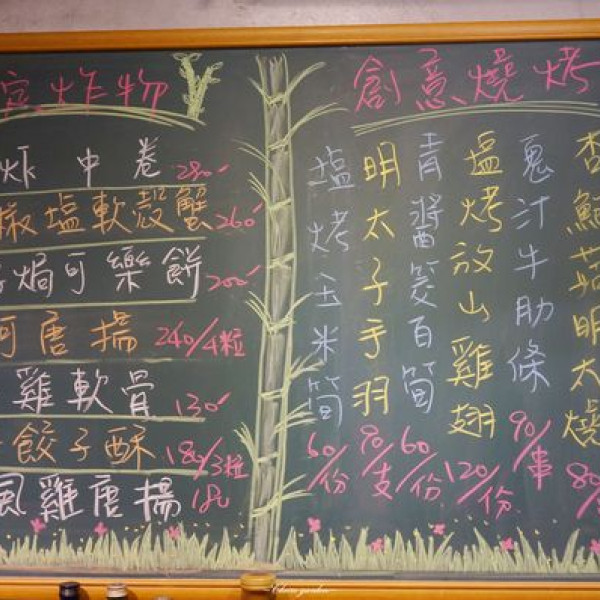 炸物
炸中卷 280
椒塩軟殼蟹 260
焗可樂餅 200
唐揚 240/4粒
雞軟骨 130
餃子酥 180/3粒
風雞唐揚 180
創意燒烤
杏鮑菇明太燒 80/
汁牛肋條 90/串
塩烤放山雞翅 120/份
青醬筊百筍 60/份
明太子手羽 90/支
塩烤玉米筍 60/份